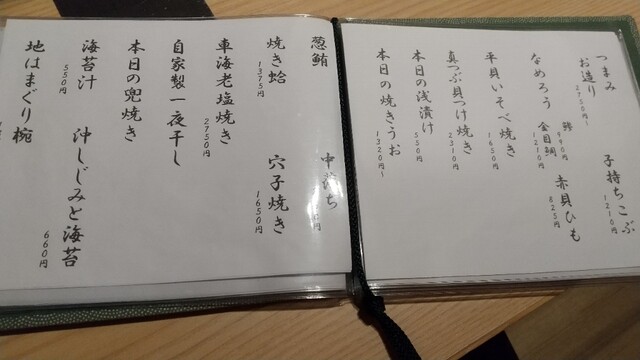 つまみ
お造り 2750円～
子持ちこぶ 1210円
なめろう 鯵 990円 金目鯛 1210円
赤貝ひも 825円
平貝いそべ焼き 1650円
真つぶ貝つけ焼き 2310円
本日の浅漬け 550円
本日の焼きうお 1320円～
葱鮪
中落ち
焼き蛤 1375円
穴子焼き 1650円
車海老塩焼き 2750円
自家製一夜干し
本日の兜焼き
海苔汁 550円
沖しじみと海苔 660円
地はまぐり椀